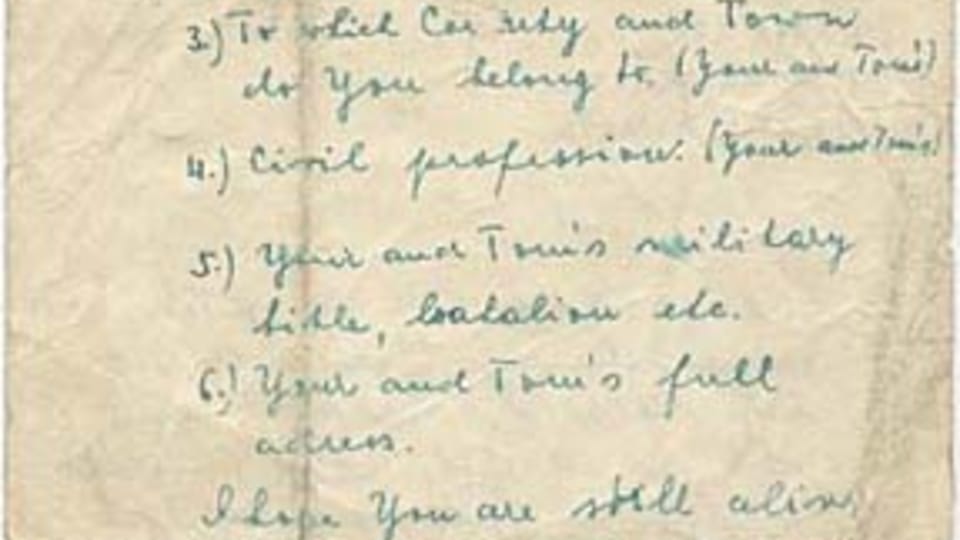 3.) To which County and Town
do You belong to. (Your and Tom's)
4.) Civil profession. (Your and Tom's)
5.) Your and Tom's military
title, batalion etc.
6.) Your and Tom's full
adress.
I hope You are still alive